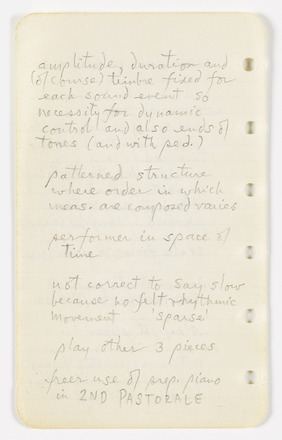 amplitude, duration and
(of course) timbre fixed for
each sound event so
necessity for dynamic
control and also ends of
tones (and with ped.)
patterned structure
where order in which
meas. are composed varies
performer in space of
time
not correct to say slow
because no felt rhythmic
movement 'sparse'
play other 3 pieces
freer use of prep. piano
in 2ND PASTORALE